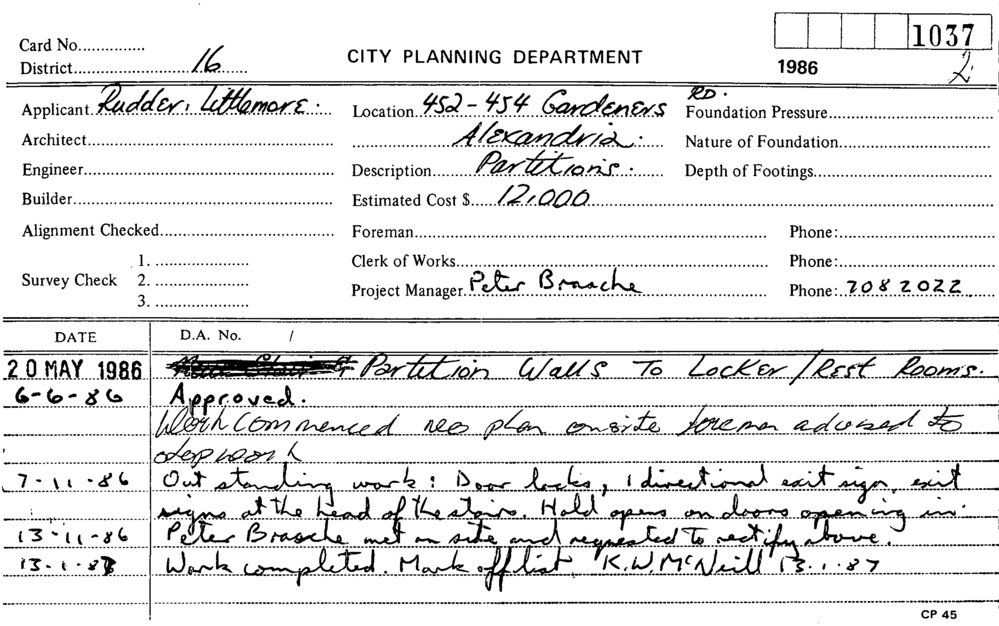 1037
Card No...............
District......16......
CITY PLANNING DEPARTMENT
1986
2
Applicant Rudder, Littlemore.
Location 452-454 Gardeners RD.
Foundation Pressure
Architect
Alexandria.
Nature of Foundation
Engineer
Description Partitions.
Depth of Footings
Builder
Estimated Cost $ 12,000
Alignment Checked
Foreman
Phone:
Survey Check
1.
2.
3.
Clerk of Works
Phone:
Project Manager Peter Brasche
Phone: 708 2022
DATE
D.A. No. /
20 MAY 1986 Partition Walls To Locker/Rest Rooms.
6-6-86 Approved.
Work commenced no plan onsite foreman advised to
stop work
7-11-86 Out standing work: Door locks, 1 directional exit sign, exit
signs at the head of the stairs. Hold opens on doors opening in.
13-11-86 Peter Brasche met on site and requested to rectify above.
13-1-87 Work completed. Mark off list K.W. McNeill 13.1.87
CP 45